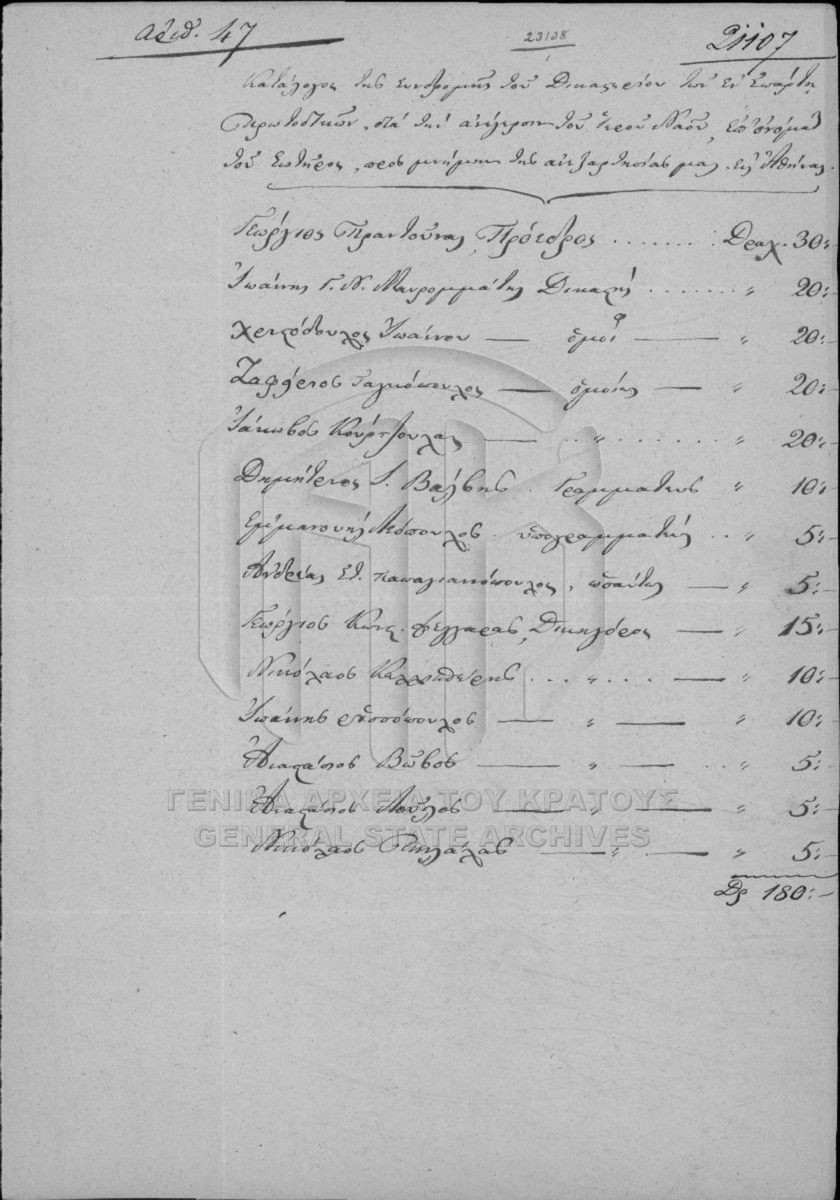 αριθ. 47
23138
21107
Κατάλογος της συνδρομής του Δικαστηρίου των εν Σπάρτη
Πρωτοδικών, διά την ανέγερσιν του ιερού Ναού, επ' ονόματι
του Σωτήρος, προς μνήμην της ανεξαρτησίας μας, εις Αθήνας.
Γεώργιος Πραντούνας, Πρόεδρος ........ Δραχ. 30:-
Ιωάννης Γ. Ν. Μαυρομμάτης Δικαστής ....... " 20:-
Χριστόδουλος Ιωάννου — ομοί — " 20:-
Ζαφείριος — ομοίως — " 20:-
Ιάκωβος — .. " ...... " 20:-
Δημήτριος Ι. Βάλβης. Γραμματεύς " 10:-
Εμμανουήλ . υπογραμματεύς .. " 5:-
Ανδρέας Στ. Παπαγιαννόπουλος, ωσαύτως — " 5:-
Γεώργιος Κωνς. Φεγγαράς, Δικηγόρος — " 15:-
Νικόλαος ... " ... — " 10:-
Ιωάννης — " — " 10:-
Αναστάσιος Βώβος — " — .. " 5:-
Αναστάσιος — " — " 5:-
Νικόλαος — " — " 5:-
Δρ 180:-
ΓΕΝΙΚΑ ΑΡΧΕΙΑ ΤΟΥ ΚΡΑΤΟΥΣ
GENERAL STATE ARCHIVES